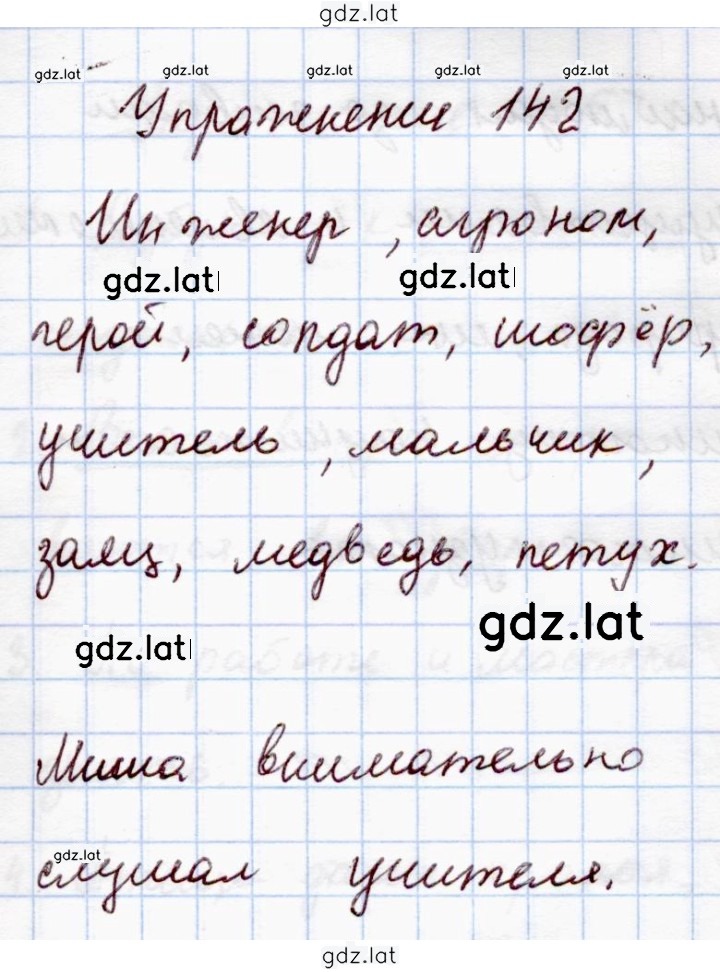 gdz.lat
gdz.lat gdz.lat gdz.lat gdz.lat gdz.lat
Упражнение 142
Инженер, агроном,
gdz.lat gdz.lat
герой, солдат, шофёр,
учитель, мальчик,
заяц, медведь, петух.
gdz.lat gdz.lat
Миша внимательно
gdz.lat
слушал учителя.
gdz.lat